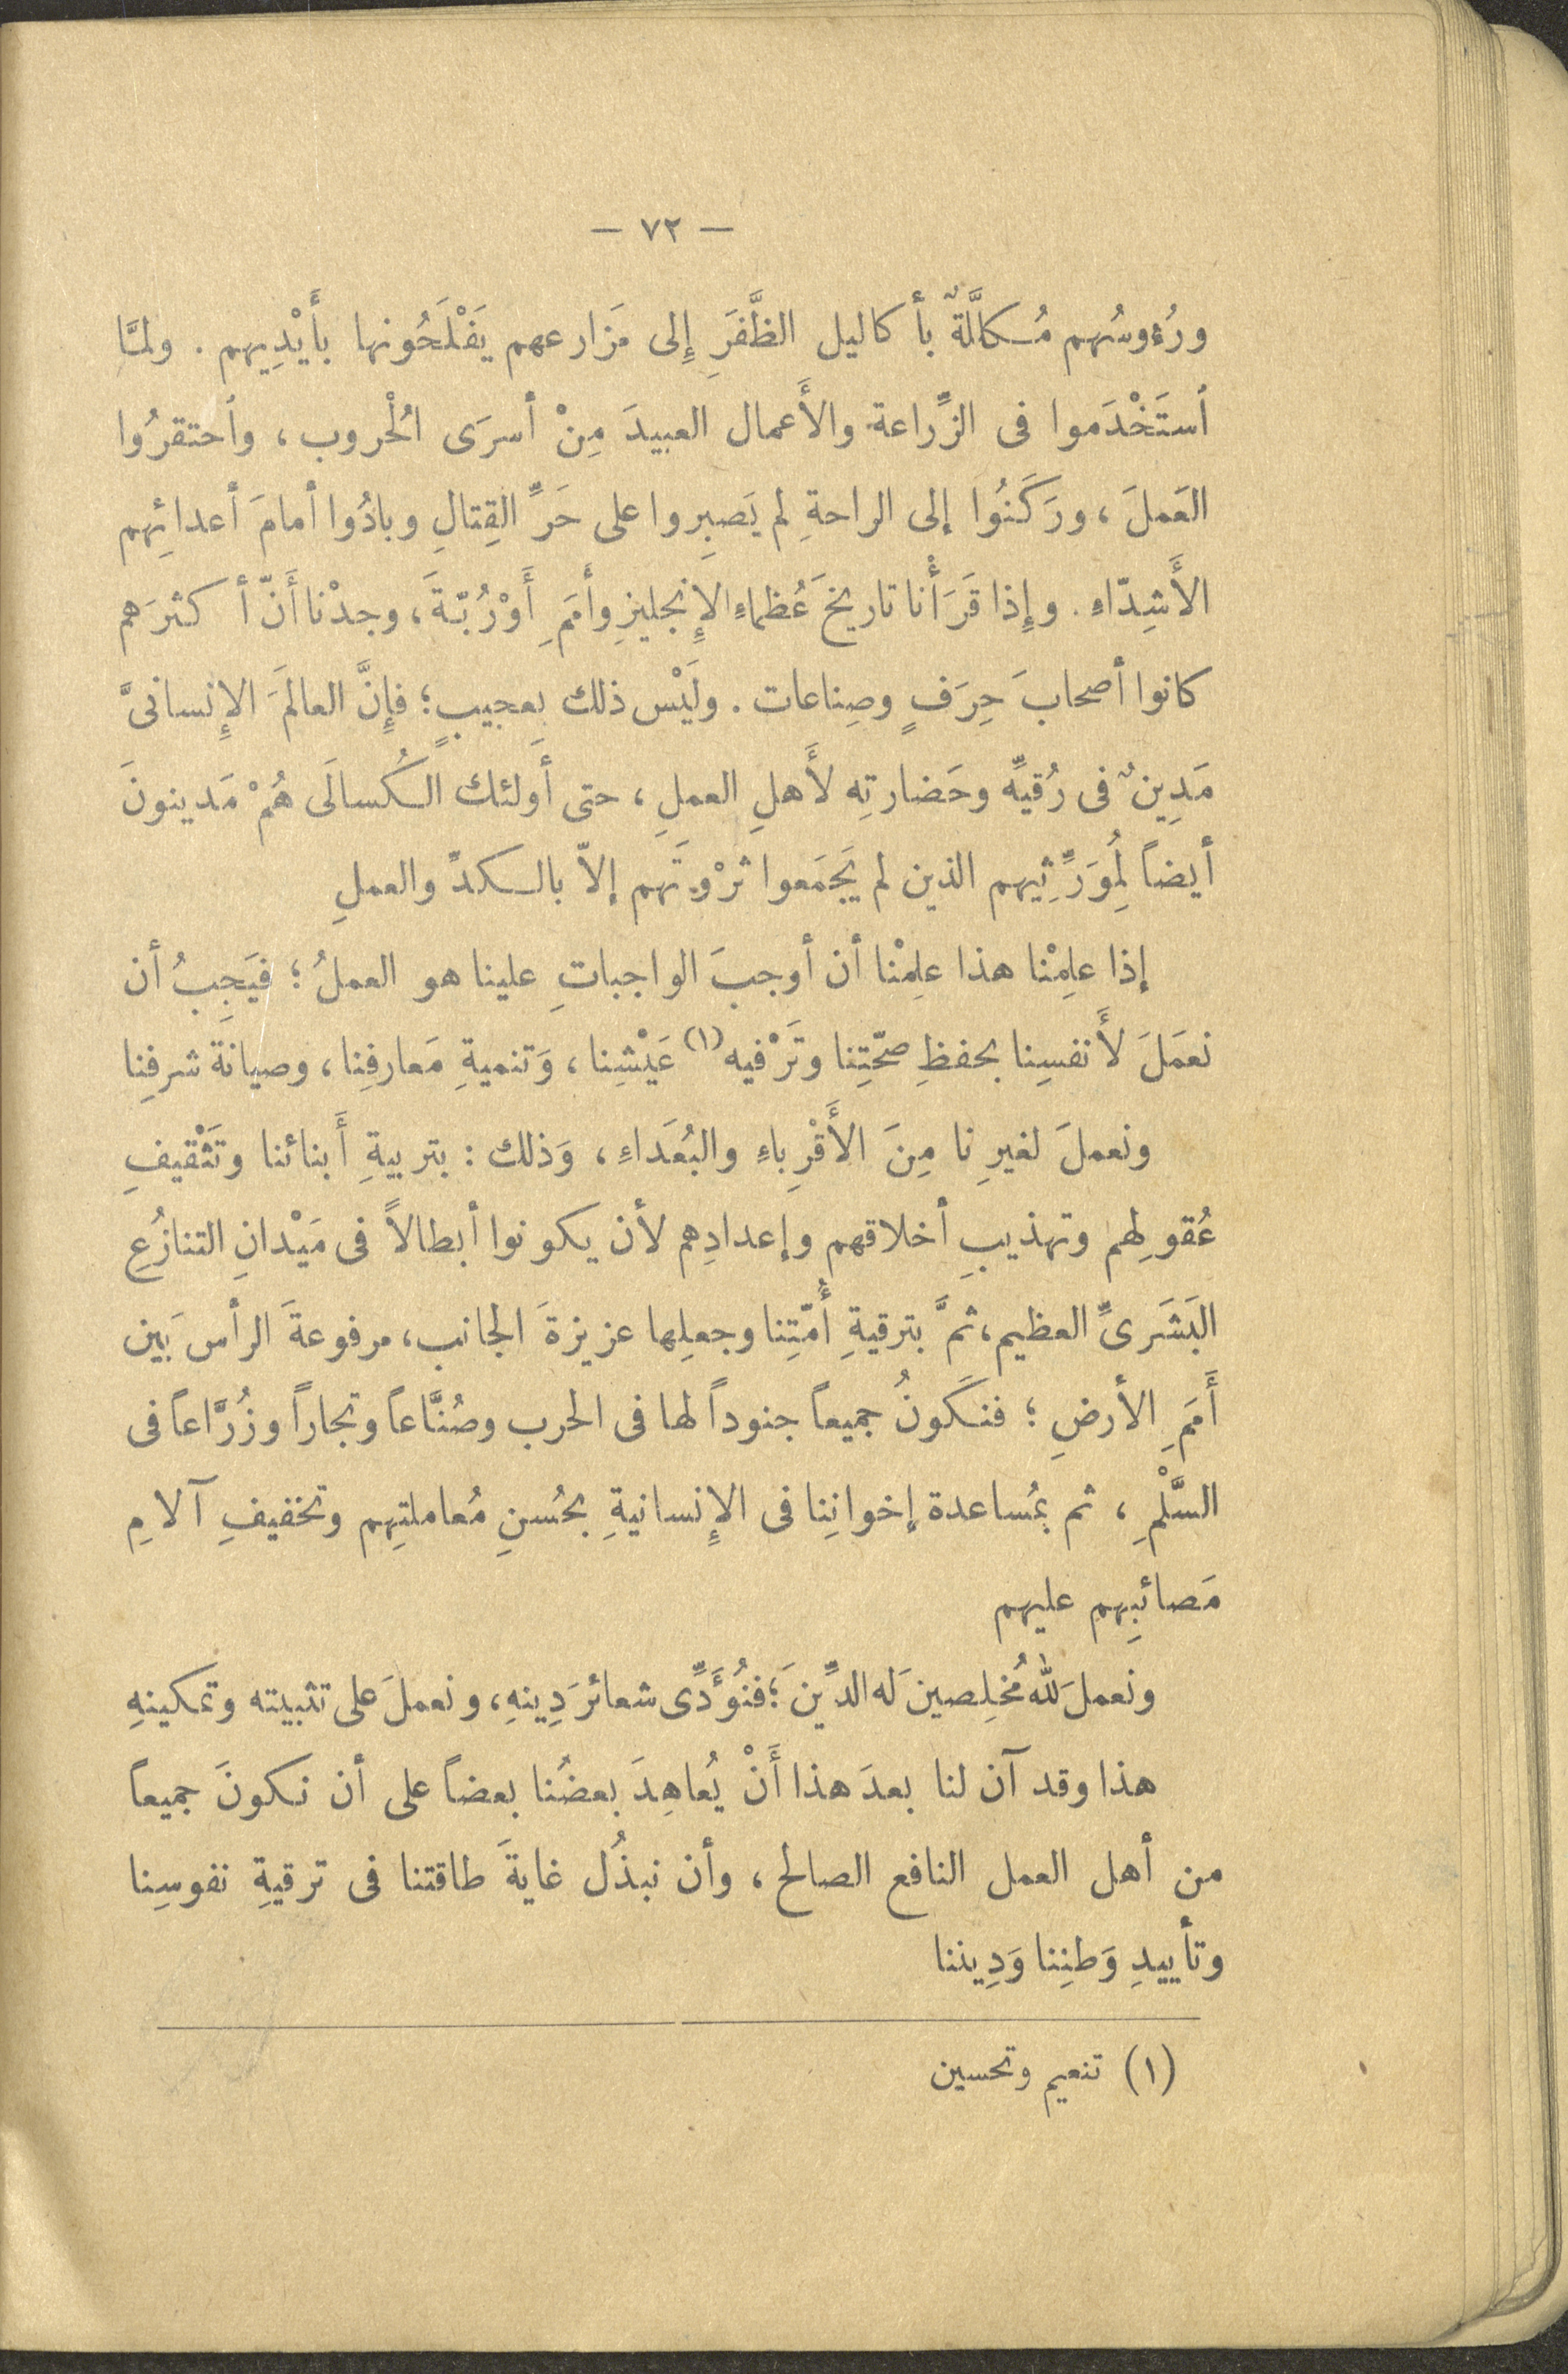 — ٧٢ —
ورُءوسُهم مُكلَّلَةٌ بأكاليل الظَّفَرِ إِلى مَزارعهم يَفْلَحُونها بأَيْدِيهم . ولمّا
أستَخْدَموا فى الزِّراعة والأَعمال العبيدَ مِنْ أسرَى الْحُروب ، وأحتقرُوا
العَملَ ، ورَكَنُوا إلى الراحةِ لم يَصبِروا على حَرِّ القِتالِ وبادُوا أمامَ أعدائِهم
الأَشِدّاءِ . وإِذا قَرَأْنا تاريخَ عُظماءِ الإِنجليزِ وأُمَمِ أَوْرُبّةَ ، وجدْنا أَنّ أكثرَهم
كانوا أصحابَ حِرَفٍ وصِناعات . ولَيْس ذلك بعجيبٍ ؛ فإِنَّ العالَمَ الإِنسانىَّ
مَدِينٌ فى رُقيِّه وحَضارتِه لأَهلِ العملِ ، حتى أُولئك الكُسالَى هُمْ مَدينونَ
أيضاً لِمُوَرِّثِيهم الذين لم يَجمَعوا ثرْوتَهم إلاّ بالكدِّ والعملِ
إذا علِمْنا هذا علِمْنا أن أوجبَ الواجباتِ علينا هو العملُ ؛ فيَجِبُ أن
نعمَلَ لأَنفسِنا بحفظِ صحّتِنا وتَرْفيه (١) عَيْشِنا ، وَتنميةِ مَعارفِنا ، وصيانة شرفِنا
ونعملَ لغيرِنا مِنَ الأَقْرِباءِ والبُعَداءِ ، وَذلك : بتربيةِ أَبنائنا وتَثْقيفِ
عُقولِهم وتهذيبِ أخلاقهم وإعدادِهم لأن يكونوا أبطالاً فى مَيْدانِ التنازُعِ
البَشَرىِّ العظيم ، ثمَّ بترقيةِ أُمّتِنا وجعلِها عزيزةَ الجانب ، مرفوعةَ الرأس بَين
أُمَمِ الأرضِ ؛ فنكونُ جميعاً جنوداً لها فى الحرب وصُنَّاعاً وتجاراً وزُرَّاعاً فى
السَّلْمِ ، ثم بمُساعدة إخوانِنا فى الإِنسانيةِ بحُسنِ مُعاملتِهم وتخفيفِ آلامِ
مَصائبِهم عليهم
ونعملَ لله مُخلِصين لَه الدِّينَ ؛ فنُؤَدِّى شعائرَ دِينهِ ، ونعملَ على تثبيته وتمكينهِ
هذا وقد آن لنا بعدَ هذا أَنْ يُعاهِدَ بعضُنا بعضاً على أن نكونَ جميعاً
من أهل العمل النافع الصالح ، وأن نبذُل غايةَ طاقتنا فى ترقيةِ نفوسِنا
وتأييدِ وَطنِنا وَدِيننا
(١) تنعيم وتحسين